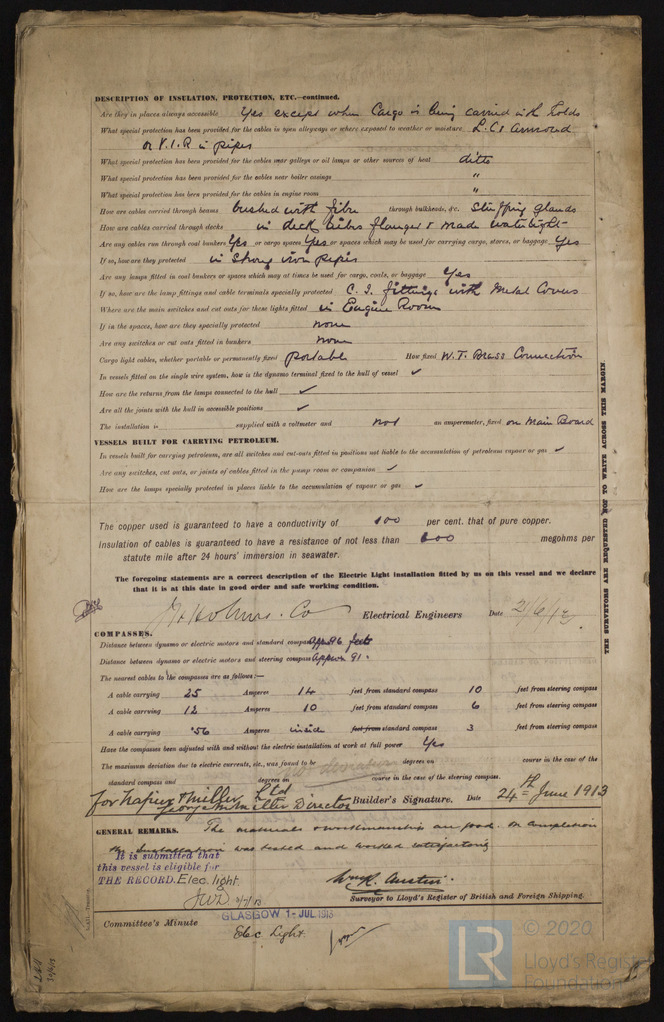 DESCRIPTION OF INSULATION, PROTECTION, ETC.—continued.
Are they in places always accessible Yes except when Cargo is being carried with holds
What special protection has been provided for the cables in open alleyways or where exposed to weather or moisture L.C. & armoured
or V.I.R in pipes
What special protection has been provided for the cables near galleys or oil lamps or other sources of heat ditto
What special protection has been provided for the cables near boiler casings "
What special protection has been provided for the cables in engine room "
How are cables carried through beams bushed with fibre through bulkheads, &c. Stuffing glands
How are cables carried through decks in deck tubes flanged & made watertight
Are any cables run through coal bunkers Yes or cargo spaces Yes or spaces which may be used for carrying cargo, stores, or baggage Yes
If so, how are they protected in Strong iron pipes
Are any lamps fitted in coal bunkers or spaces which may at times be used for cargo, coals, or baggage Yes
If so, how are the lamp fittings and cable terminals specially protected C.I. fittings with Metal Covers
Where are the main switches and cut outs for these lights fitted in Engine Room
If in the spaces, how are they specially protected none
Are any switches or cut outs fitted in bunkers none
Cargo light cables, whether portable or permanently fixed portable How fixed W.T. Brass Connection
In vessels fitted on the single wire system, how is the dynamo terminal fixed to the hull of vessel ✓
How are the returns from the lamps connected to the hull ✓
Are all the joints with the hull in accessible positions ✓
The installation is supplied with a voltmeter and an amperemeter, fixed on Main Board
VESSELS BUILT FOR CARRYING PETROLEUM.
In vessels built for carrying petroleum, are all switches and cut-outs fitted in positions not liable to the accumulation of petroleum vapour or gas ✓
Are any switches, cut outs, or joints of cables fitted in the pump room or companion ✓
How are the lamps specially protected in places liable to the accumulation of vapour or gas ✓
The copper used is guaranteed to have a conductivity of 100 per cent. that of pure copper.
Insulation of cables is guaranteed to have a resistance of not less than 600 megohms per
statute mile after 24 hours' immersion in seawater.
The foregoing statements are a correct description of the Electric Light installation fitted by us on this vessel and we declare
that it is at this date in good order and safe working condition.
Holmes & Co Electrical Engineers Date 21/6/13
COMPASSES.
Distance between dynamo or electric motors and standard compass Approx 96 feet
Distance between dynamo or electric motors and steering compass Approx 91 "
The nearest cables to the compasses are as follows:—
A cable carrying 25 Amperes 14 feet from standard compass 10 feet from steering compass
A cable carrying 12 Amperes 10 feet from standard compass 6 feet from steering compass
A cable carrying .56 Amperes inside feet from standard compass 3 feet from steering compass
Have the compasses been adjusted with and without the electric installation at work at full power Yes
The maximum deviation due to electric currents, etc., was found to be no deviation degrees on course in the case of the
standard compass and degrees on course in the case of the steering compass.
for Napier & Miller Ltd
George Miller Director Builder's Signature. Date 24th June 1913
GENERAL REMARKS. The materials & workmanship are good. On completion
the Installation was tested and worked satisfactorily
It is submitted that
this vessel is eligible for
THE RECORD. Elec. light.
JWD 2/7/13
Wm R. Austin.
Surveyor to Lloyd's Register of British and Foreign Shipping.
GLASGOW 1 - JUL 1913
Committee's Minute
Elec. Light.
THE SURVEYORS ARE REQUESTED NOT TO WRITE ACROSS THIS MARGIN.
LR
© 2020
Lloyd's Register
Foundation